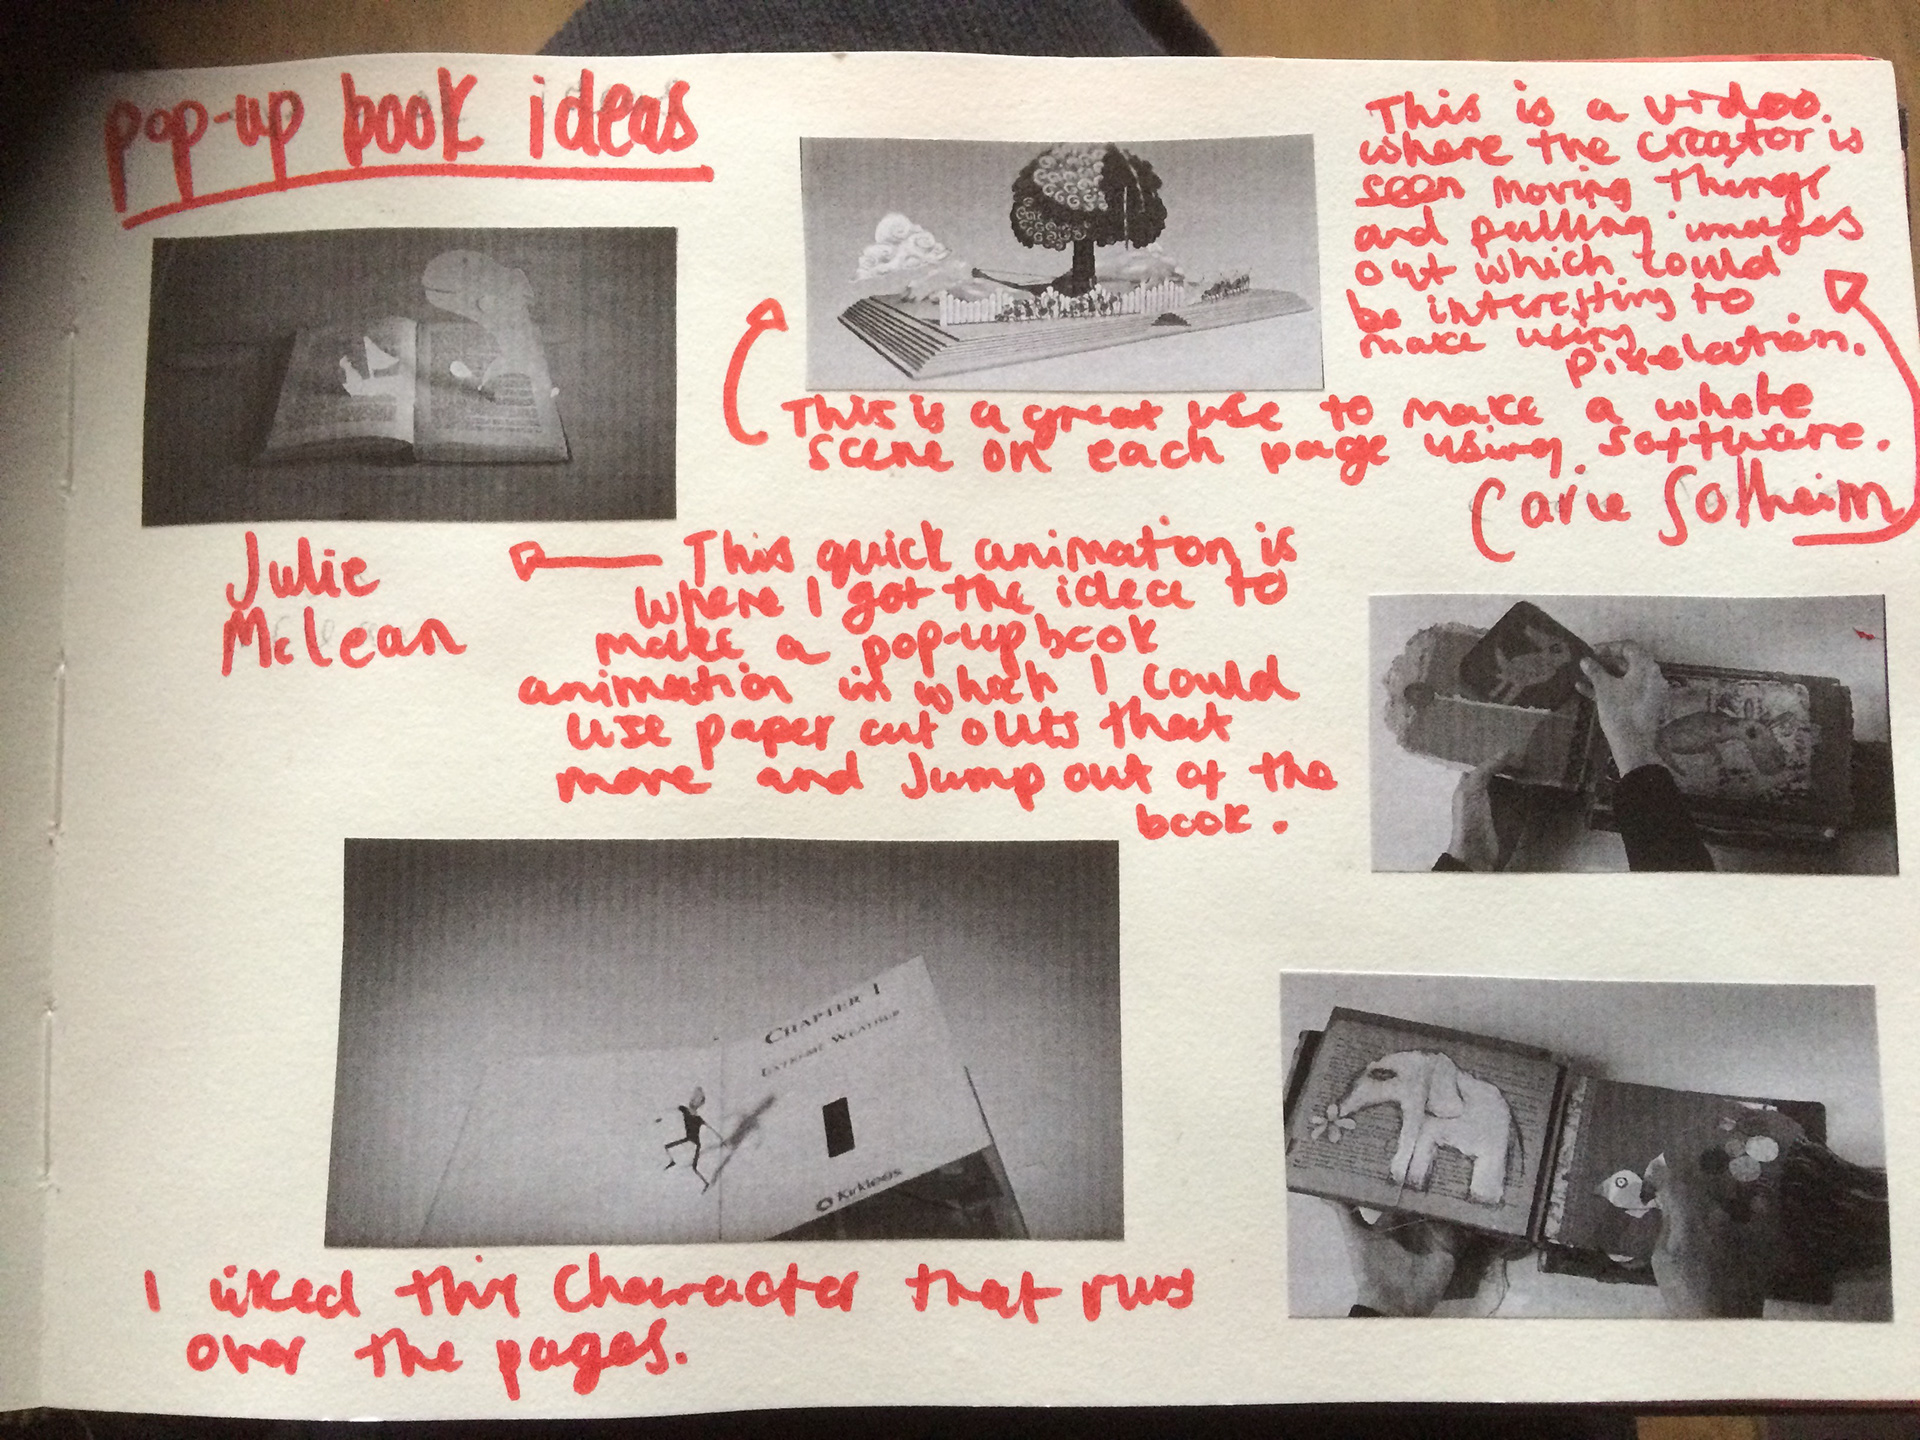 Pop-up book ideas
This is a video
where the creator is
seen moving things
and pulling images
out which could
be interesting to
make using
pixelation.
This is a great use to make a whole
scene on each page using software.
Carie Solheim
Julie
McLean
This quick animation is
where I got the idea to
make a pop-up book
animation in which I could
use paper cut outs that
move and Jump out of the
book.
CHAPTER 1
EXTREME WEATHER
Kirklees
I liked this Character that runs
over the pages.